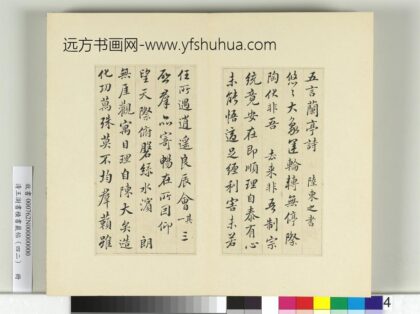 远方书画网-www.yfshuhua.com
五言蘭亭詩 陸柬之書
悠々大象運輪轉無停際
陶化非吾 去來非吾制宗
統竟安在即順理自泰有心
未能悟適足纏利害未若
任所遇逍遙良辰會 其三
群品寄暢在所因仰
望天際俯磐綠水濱 朗
無厓觀寓目理自陳大矣造
化功萬殊莫不均群籟雖
故書 000762N000000000